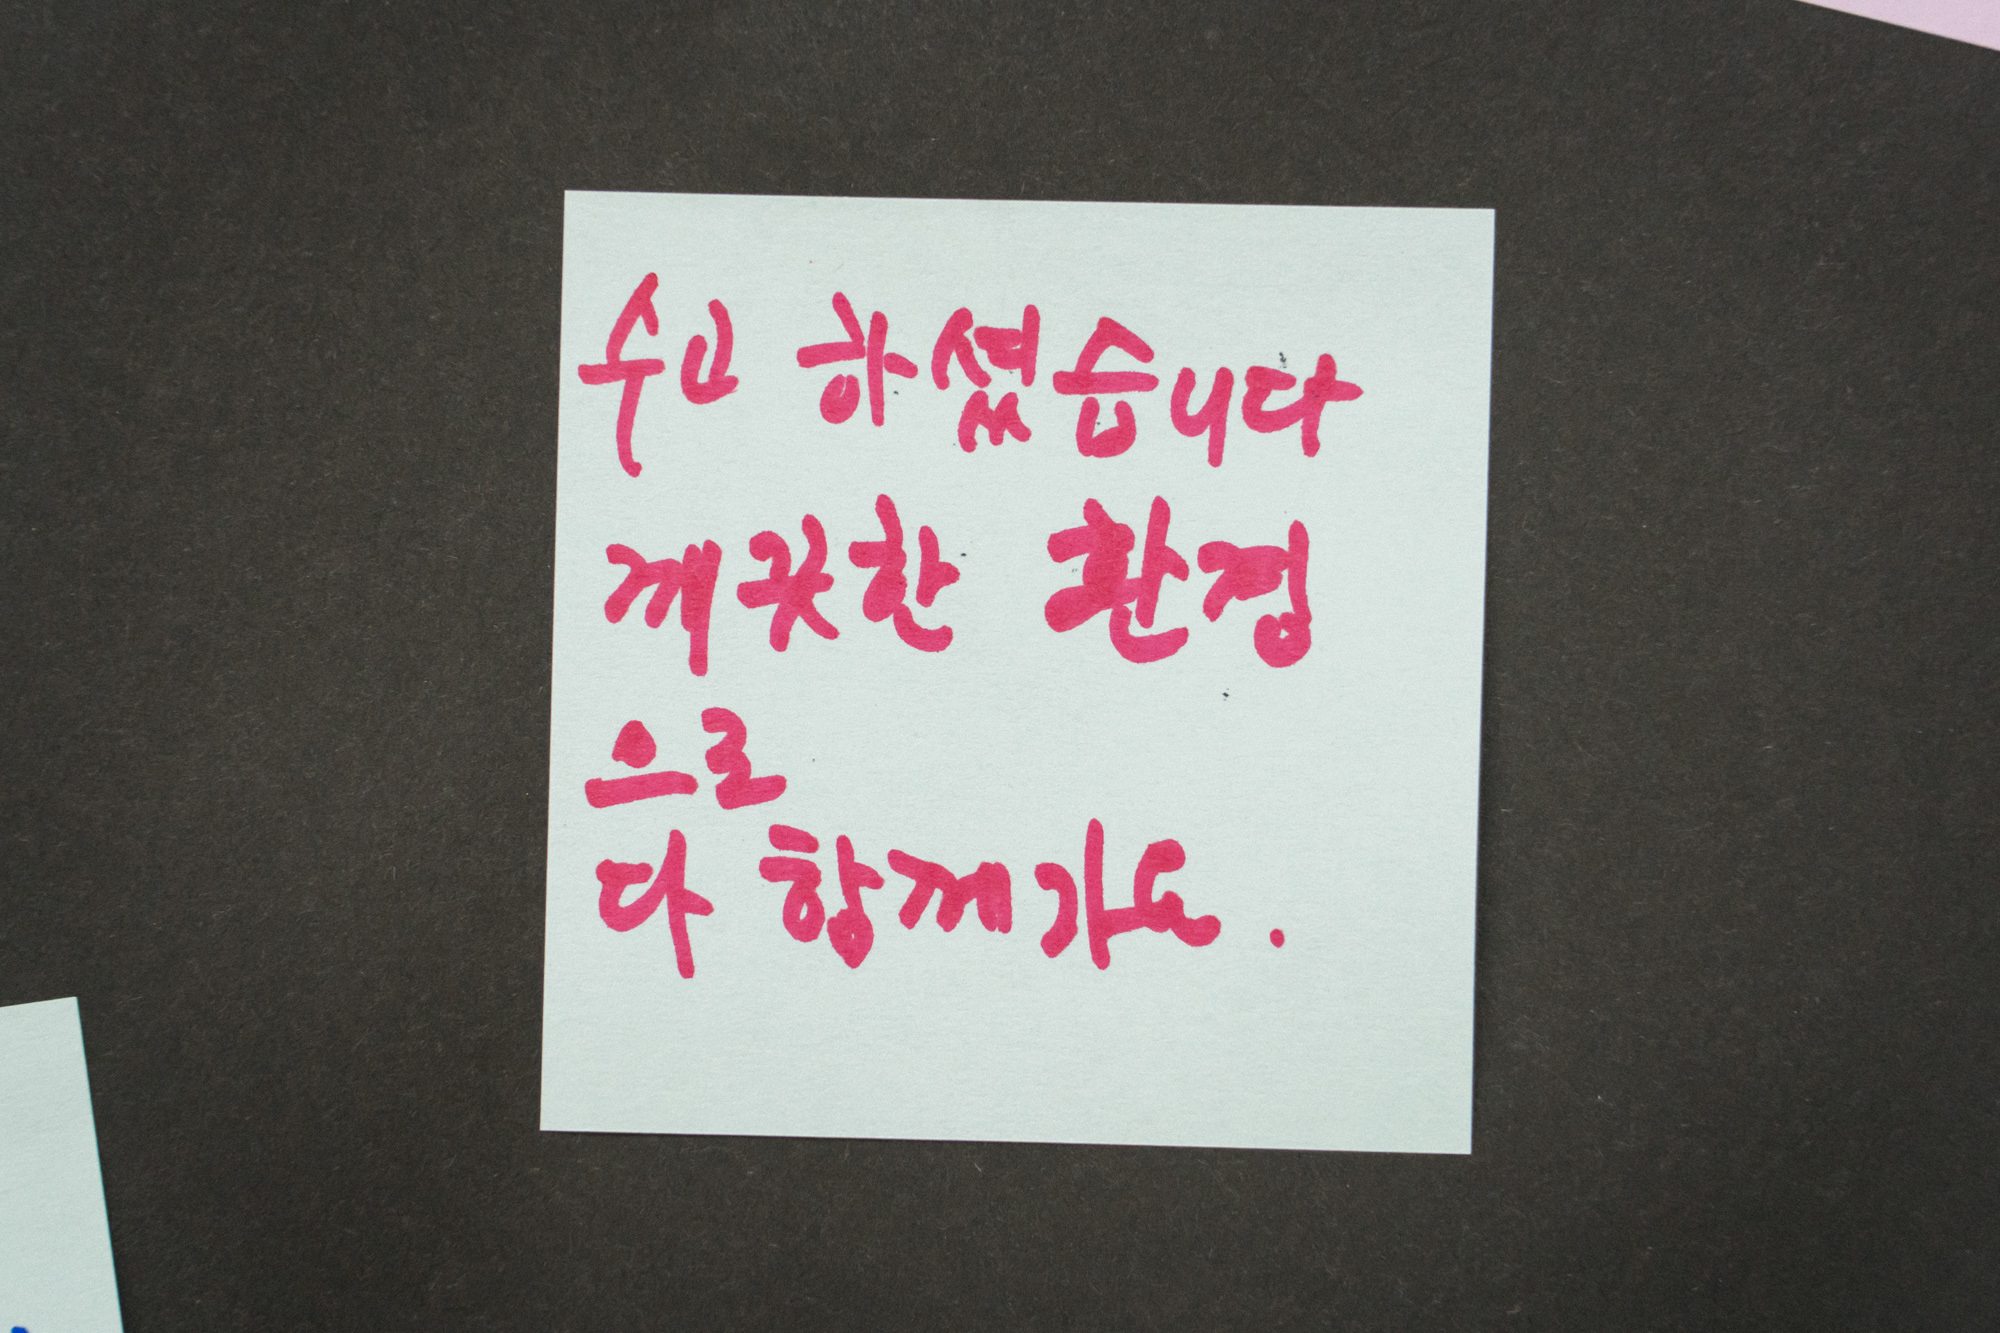 수고 하셨습니다
깨끗한 환경
으로
다 함께가요.